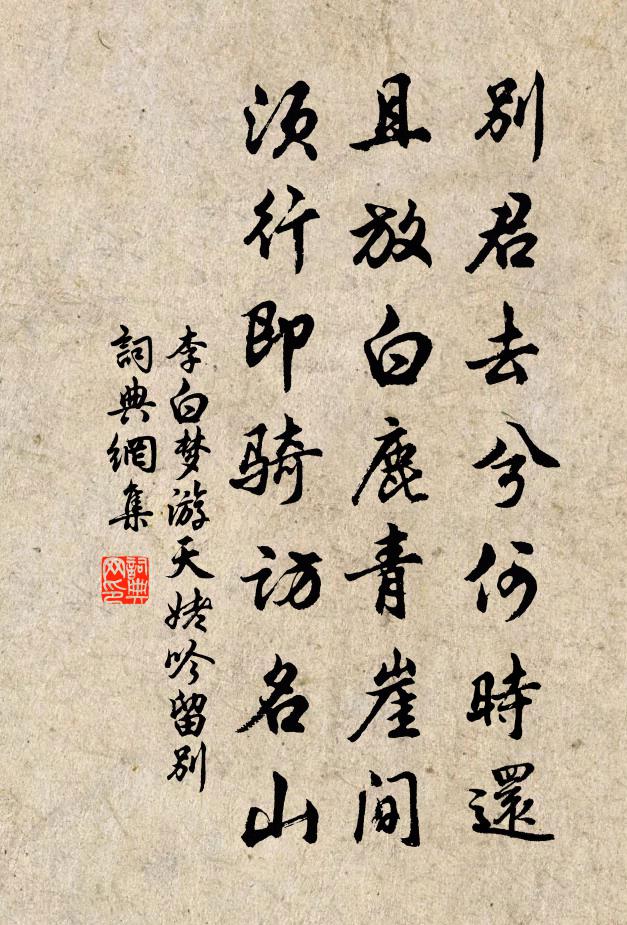 別君去兮何時還
且放白鹿青崖間
須行即騎訪名山
李白梦游天姥吟留别
詞典網集
詞典网印